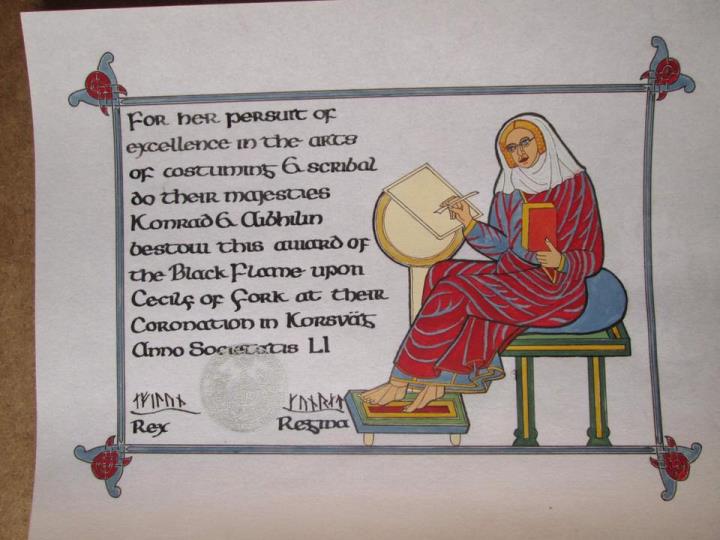 For her persuit of
excellence in the arts
of costuming & scribal
do their majesties
Konrad & Aibhilin
bestow this award of
the Black Flame upon
Cecily of York at their
Coronation in Korsväg
Anno Societatis LI
Rex
Regina